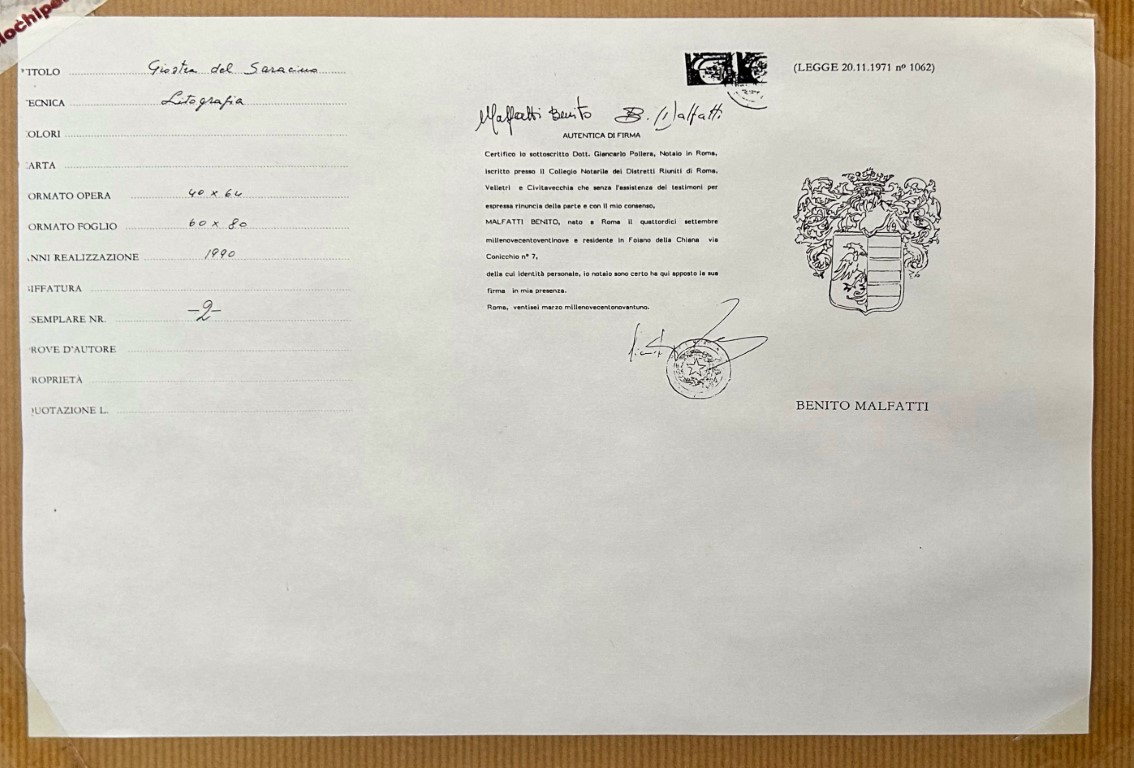 lochip
TITOLO Giostra del Saracino
ECNICA Litografia
OLORI
ARTA
ORMATO OPERA 40 x 64
ORMATO FOGLIO 60 x 80
NNI REALIZZAZIONE 1990
IFFATURA
SEMPLARE NR. -2-
ROVE D'AUTORE
ROPRIETÀ
UOTAZIONE L.
Malfatti Benito B. Malfatti
AUTENTICA DI FIRMA
Certifico io sottoscritto Dott. Giancarlo Pollera, Notaio in Roma,
iscritto presso il Collegio Notarile dei Distretti Riuniti di Roma,
Velletri e Civitavecchia che senza l'assistenza dei testimoni per
espressa rinuncia della parte e con il mio consenso,
MALFATTI BENITO, nato a Roma il quattordici settembre
millenovecentoventinove e residente in Foiano della Chiana via
Conicchio n° 7,
della cui identità personale, io notaio sono certo he qui apposto la sua
firma in mia presenza.
Roma, ventisei marzo millenovecentonovantuno.
(LEGGE 20.11.1971 nº 1062)
BENITO MALFATTI